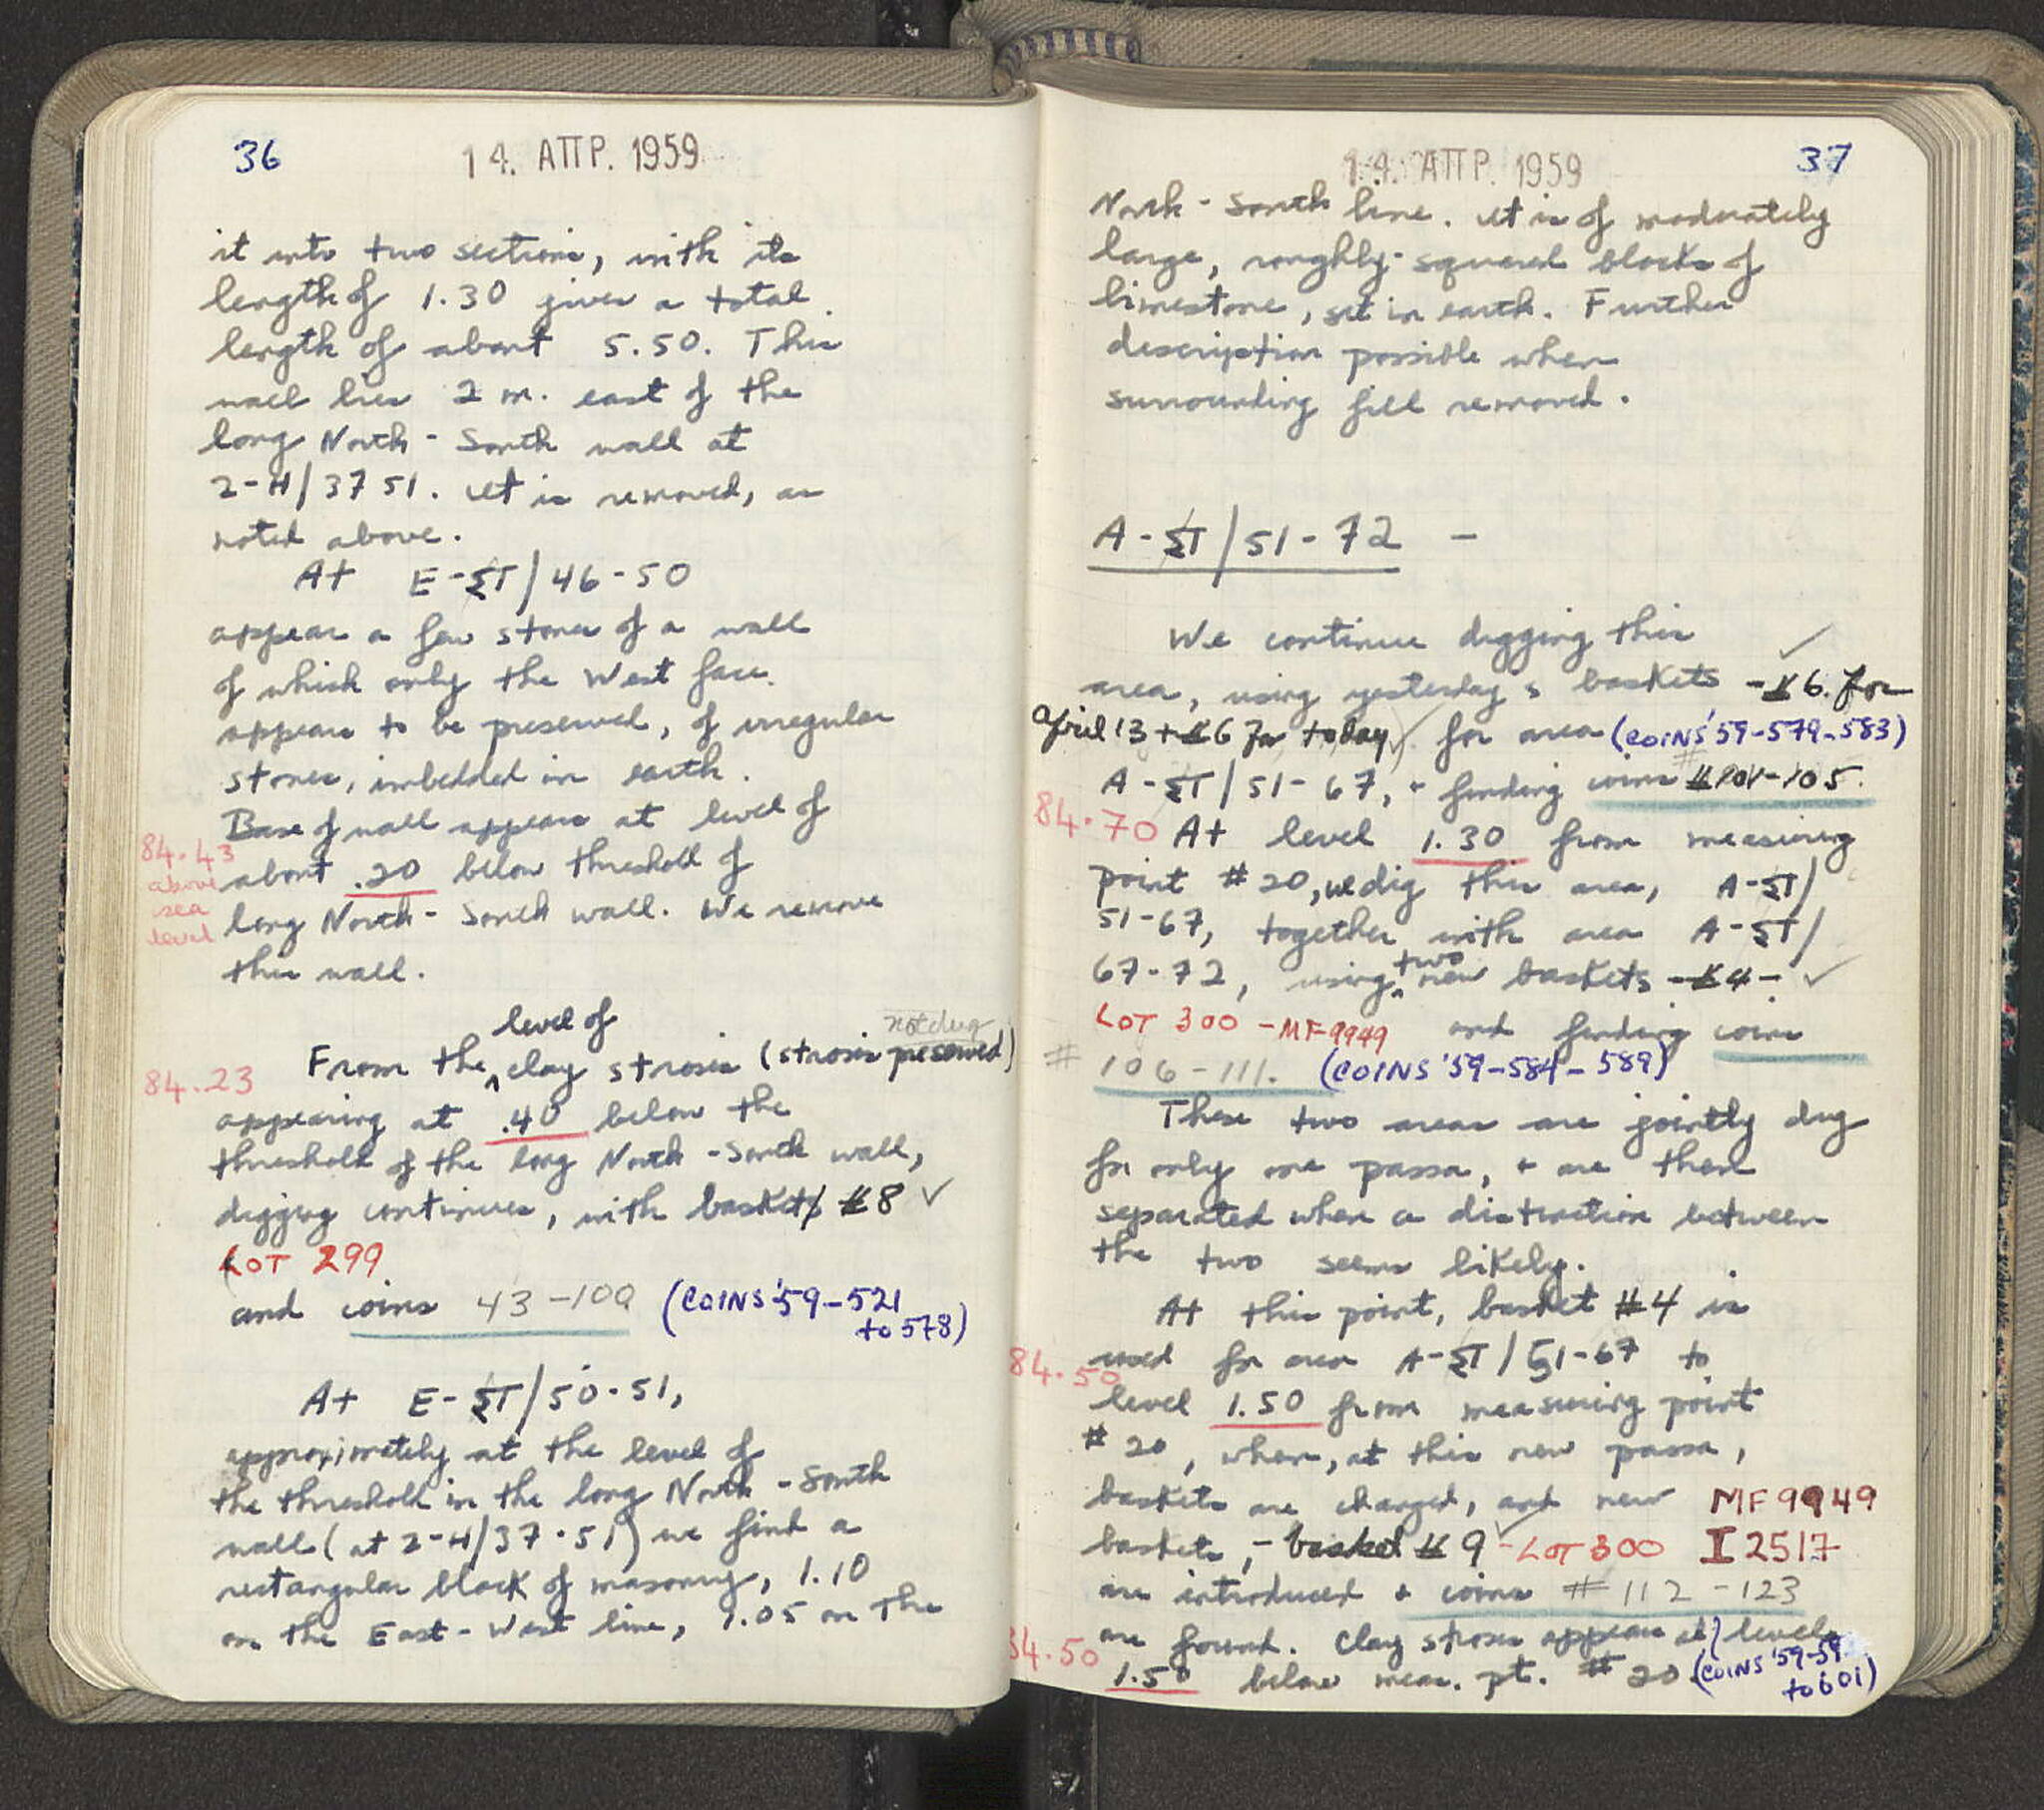 36
14. ΑΠΡ. 1959
it into two sections, with its
length of 1.30 gives a total
length of about 5.50. This
wall lies 2 m. east of the
long North-South wall at
2-H/3751. It is removed, as
noted above.
At E-ΣΤ/46-50
appear a few stones of a wall
of which only the West face
appears to be preserved, of irregular
stones, imbedded in earth.
Base of wall appears at level of
84.43 above sea level
about .20 below threshold of
long North-South wall. We remove
this wall.
level of
not dug
From the clay strosis (strosis preserved)
84.23
appearing at .40 below the
threshold of the long North-South wall,
digging continues, with basket #8 ✓
LOT 299
and coins 43-100 (COINS '59-521
to 578)
At E-ΣΤ/50-51,
approximately at the level of
the threshold in the long North-South
wall (at 2-H/37-51) we find a
rectangular block of masonry, 1.10
on the East-West line, 1.05 on the
14. ΑΠΡ. 1959
37
North-South line. It is of moderately
large, roughly-squared blocks of
limestone, set in earth. Further
description possible when
surrounding fill removed.
A-ΣΤ/51-72 -
We continue digging this
area, using yesterday's baskets -#6. for
April 13 + #6 for today ✓ for area (COINS '59-579-583)
A-ΣΤ/51-67, + finding coins #101-105.
84.70 At level 1.30 from measuring
point #20, we dig this area, A-ΣΤ/
51-67, together with area A-ΣΤ/
two
67-72, using new baskets -#4- ✓
LOT 300 -MF9949 and finding coins
# 106-111. (COINS '59-584-589)
These two areas are jointly dug
for only one passa, + are then
separated when a distinction between
the two seems likely.
At this point, basket #4 is
84.50 used for area A-ΣΤ/51-67 to
level 1.50 from measuring point
#20, when, at this new passa,
baskets are changed, and new MF9949
baskets, - basket #9 ✓-LOT 300 I 2517
are introduced + coins #112-123
are found. Clay strosis appears at level
84.50 1.50 below meas. pt. #20 (COINS '59-59
to 601)